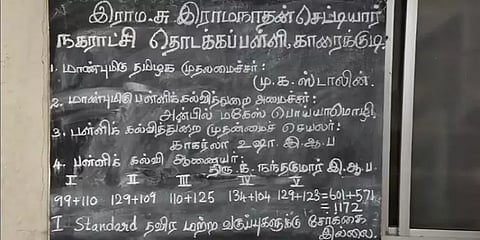 இராம.சு.இராமநாதன் செட்டியார்
நகராட்சி தொடக்கப்பள்ளி, காரைக்குடி
1. மாண்புமிகு தமிழக முதலமைச்சர்:
மு.க.ஸ்டாலின்.
2. மாண்புமிகு பள்ளிக்கல்வித்துறை அமைச்சர்:
அன்பில் மகேஸ் பொய்யாமொழி,
3. பள்ளிக் கல்வித்துறை முதன்மைச் செயலர்:
காகர்லா உஷா. இ.ஆ.ப
4. பள்ளிக் கல்வி ஆணையர்:
திரு.க. நந்தகுமார் இ.ஆ.ப.
I II III IV V
99+110 129+109 110+125 134+104 129+123=601+571
=1172
I Standard தவிர மற்ற வகுப்புகளுக்கு சேர்க்கை
இல்லை.